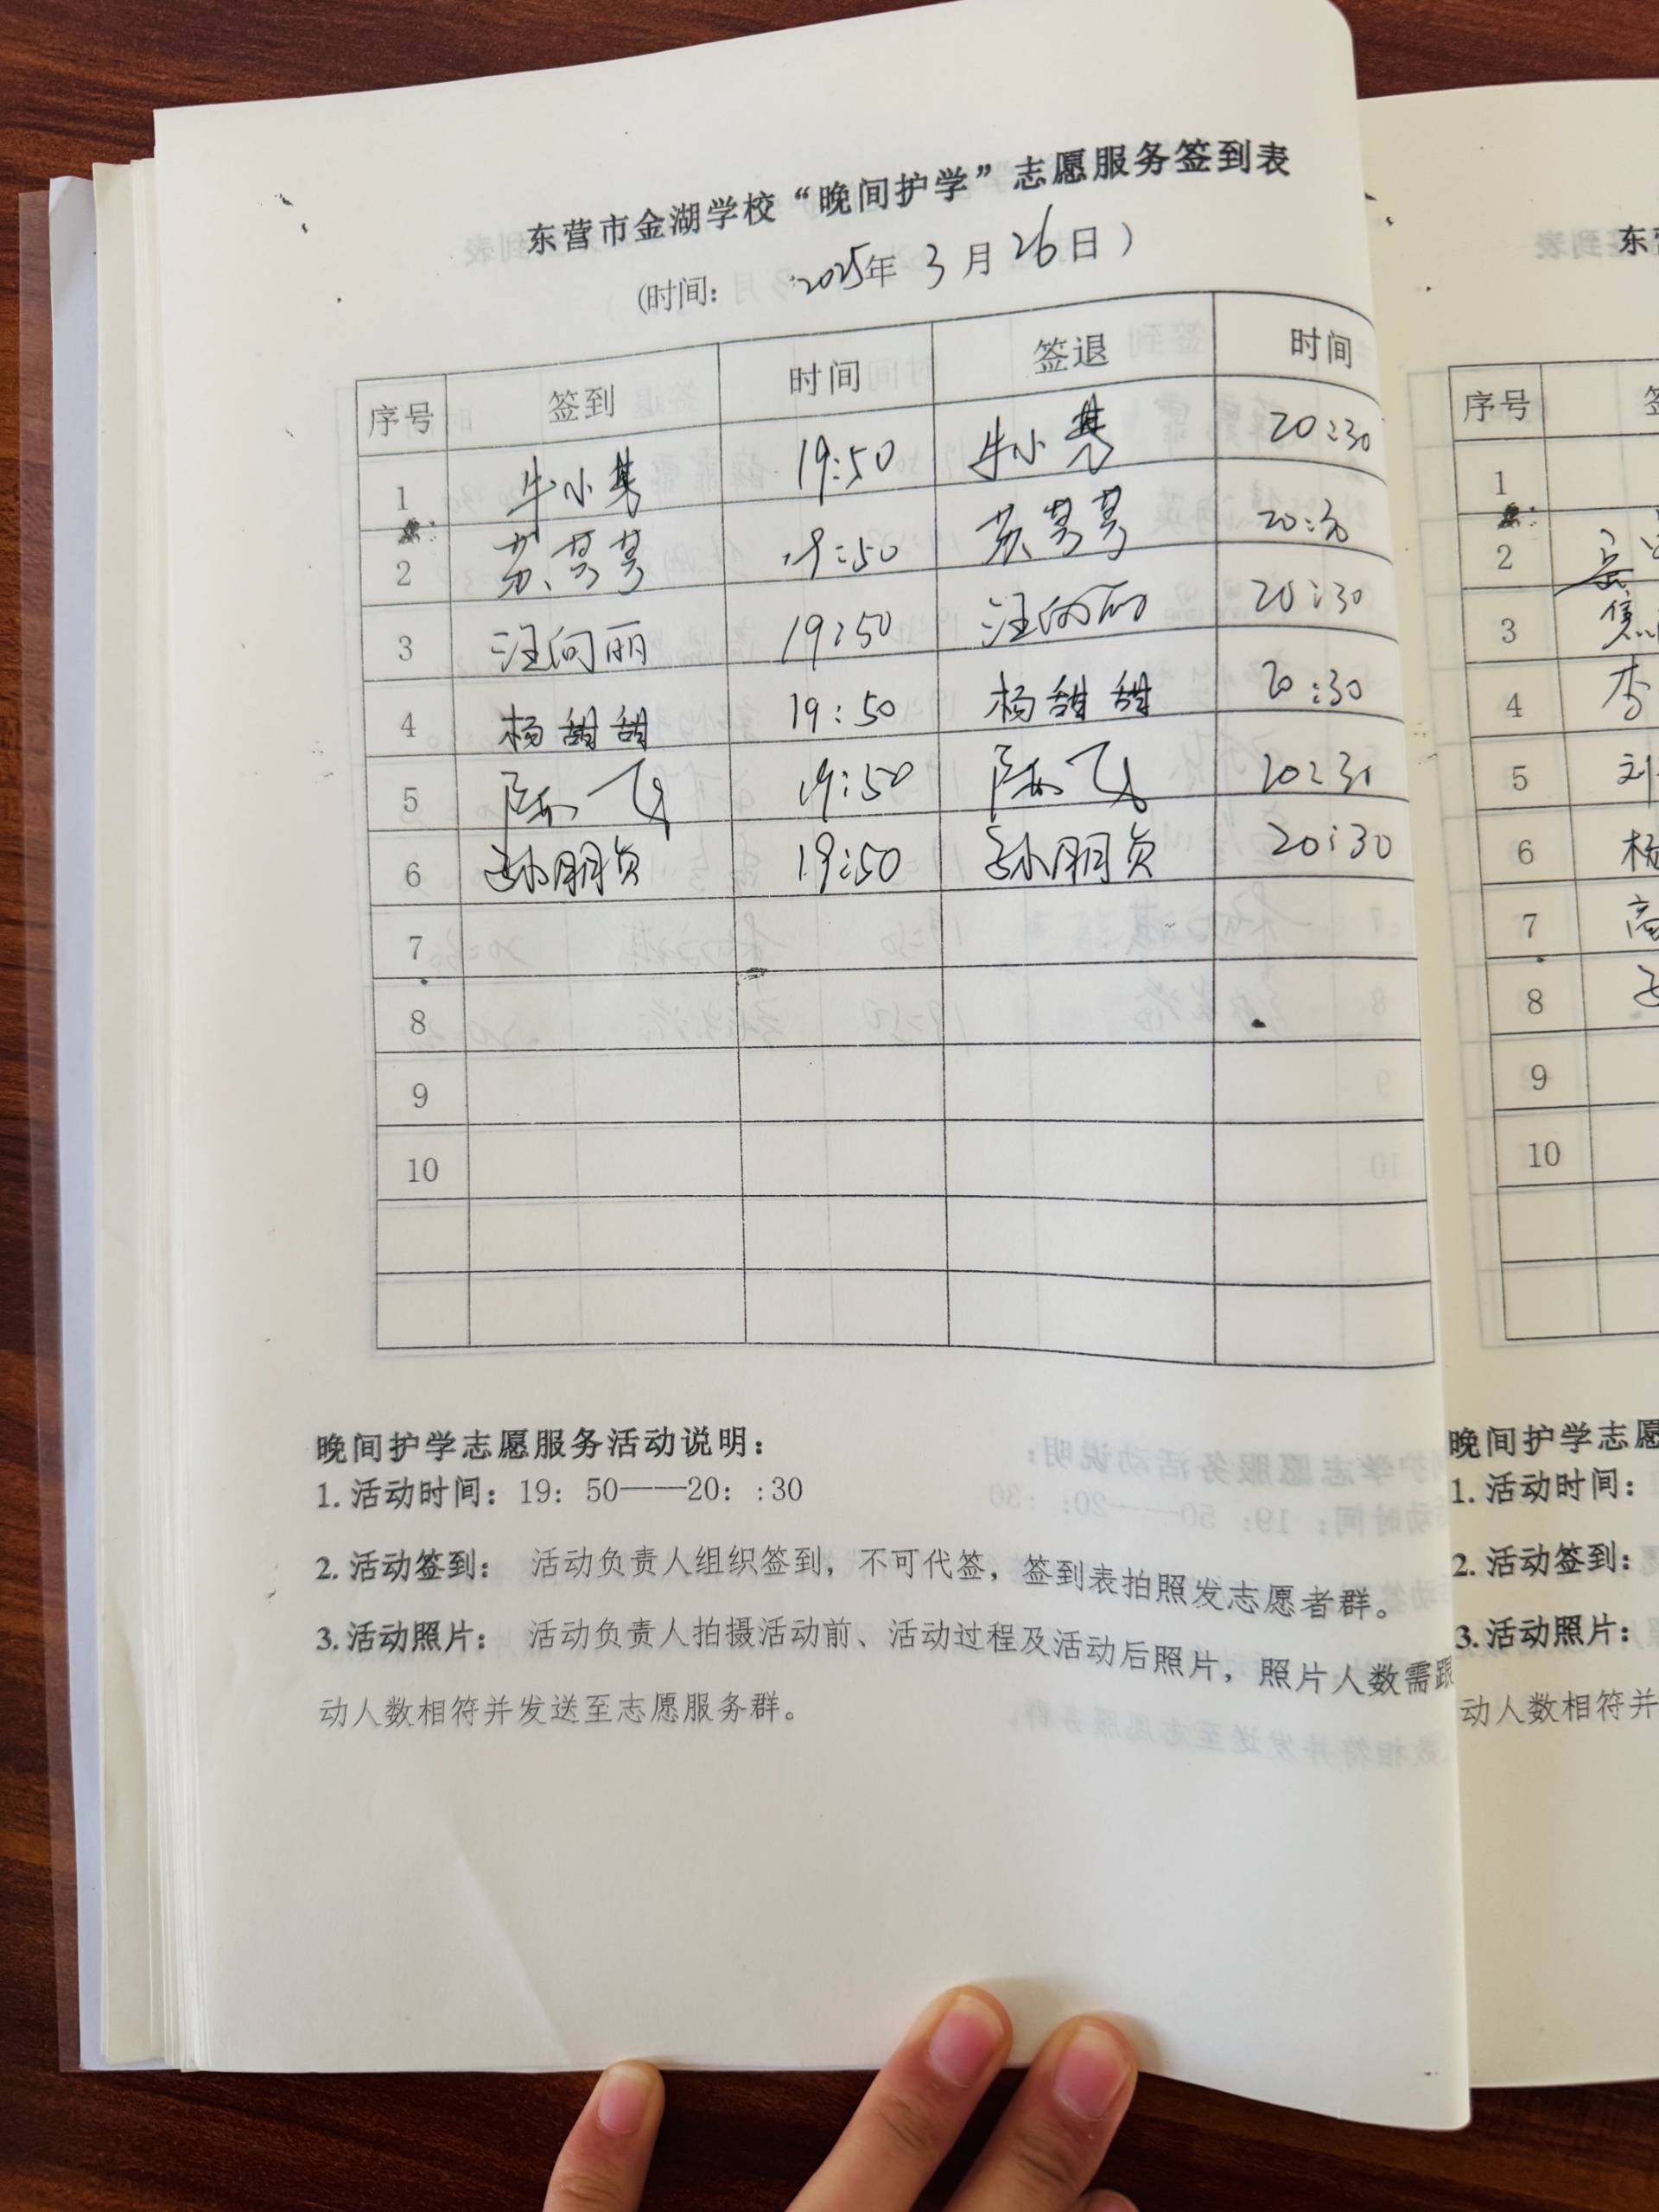 东营市金湖学校“晚间护学”志愿服务签到表
(时间: 2025年 3月 26日)
序号 签到 时间 签退 时间
1 牛小 19:50 牛小 20:30
2 苏 19:50 苏 20:30
3 汪向丽 19:50 汪向丽 20:30
4 杨甜甜 19:50 杨甜甜 20:30
5 陈飞 19:50 陈飞 20:31
6 孙朋贞 19:50 孙朋贞 20:30
7
8
9
10
晚间护学志愿服务活动说明:
1.活动时间: 19: 50——20: :30
2.活动签到: 活动负责人组织签到,不可代签,签到表拍照发志愿者群。
3.活动照片: 活动负责人拍摄活动前、活动过程及活动后照片,照片人数需跟
动人数相符并发送至志愿服务群。
东
序号
1
2
3 焦
4 李
5 刘
6 杨
7 高
8
9
10
晚间护学志愿
1.活动时间:
2.活动签到:
3.活动照片:
动人数相符并